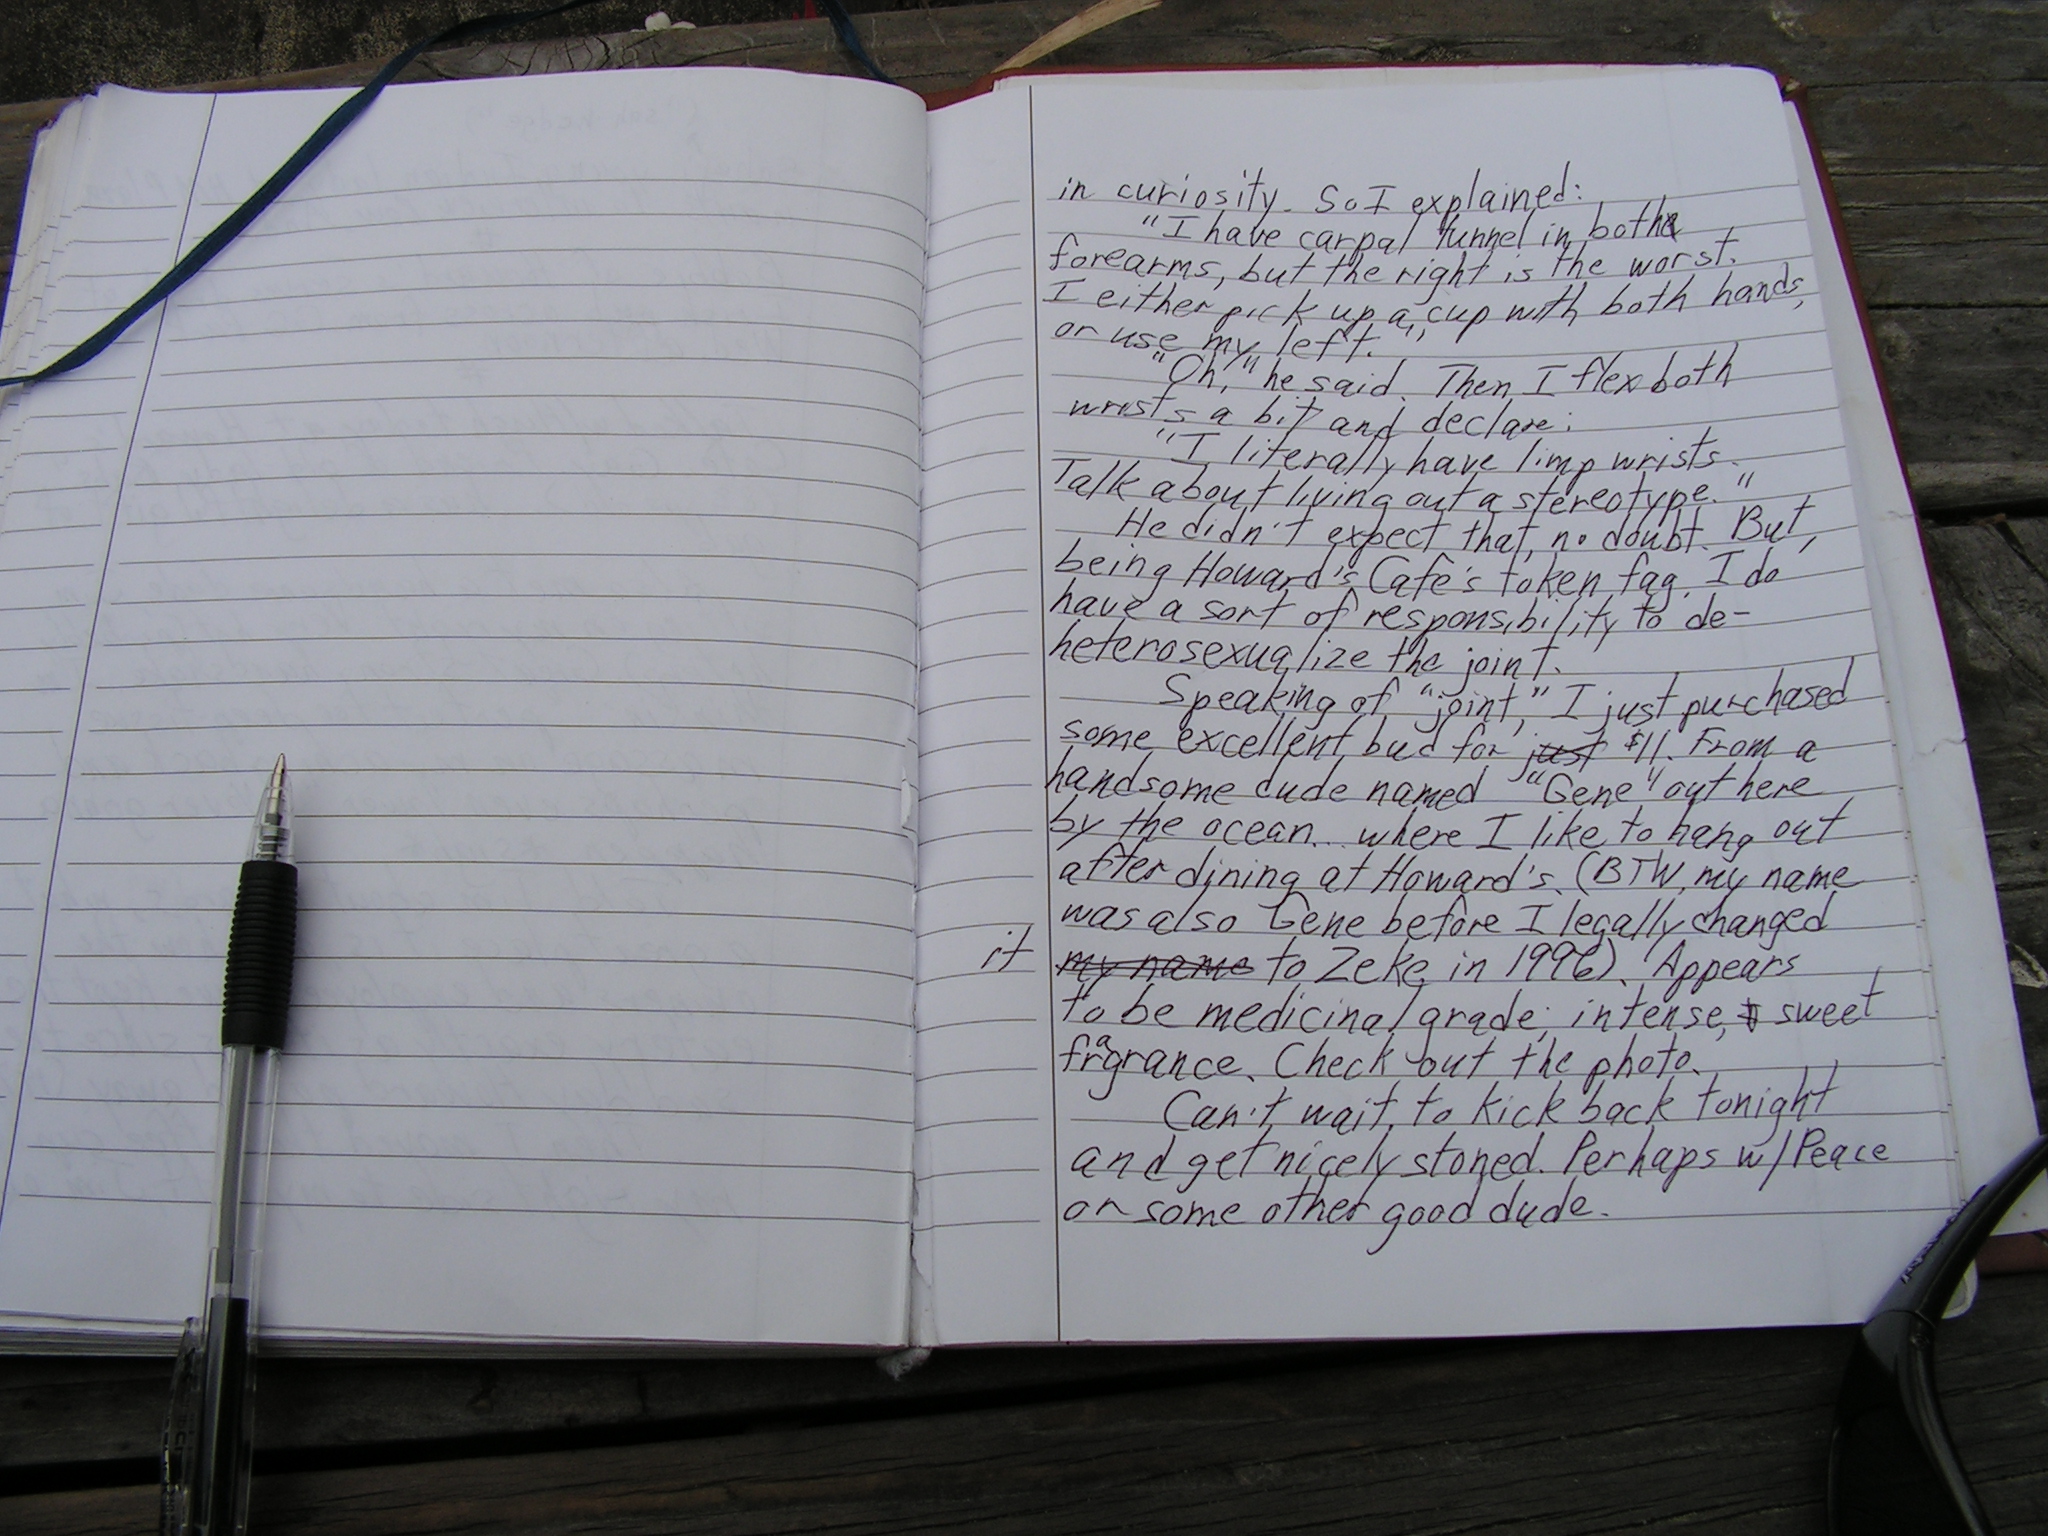 in curiosity. So I explained:
"I have carpal tunnel in both
forearms, but the right is the worst.
I either pick up a cup with both hands,
or use my left."
"Oh," he said. Then I flex both
wrists a bit and declare:
"I literally have limp wrists.
Talk about living out a stereotype."
He didn't expect that, no doubt. But,
being Howard's Cafe's token fag, I do
have a sort of responsibility to de-
heterosexualize the joint.
Speaking of "joint," I just purchased
some excellent bud for just $11. From a
handsome dude named "Gene" out here
by the ocean... where I like to hang out
after dining at Howard's. (BTW, my name
was also Gene before I legally changed
it my name to Zeke in 1996). Appears
to be medicinal grade; intense, sweet
fragrance. Check out the photo.
Can't wait to kick back tonight
and get nicely stoned. Perhaps w/Peace
or some other good dude.